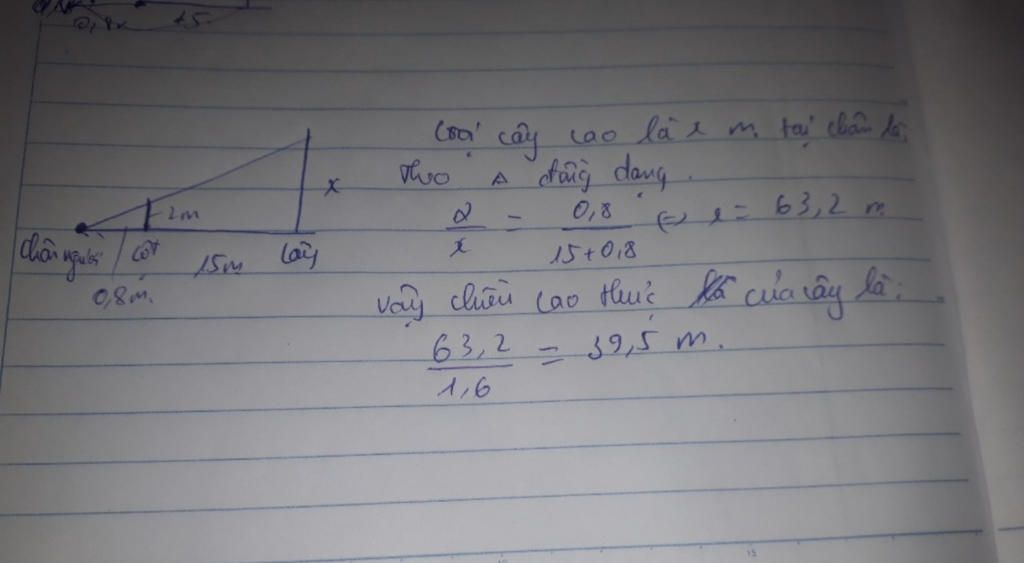 0,8m 15
Gọi cây cao là x m. tại chân là:
Theo △ đồng dạng.
2/x = 0,8/(15+0,8) (=) x = 63,2 m
Vậy chiều cao thực của cây là:
63,2/1,6 = 39,5 m.
2m
x
Chân người cột 15m Cây
0,8m.